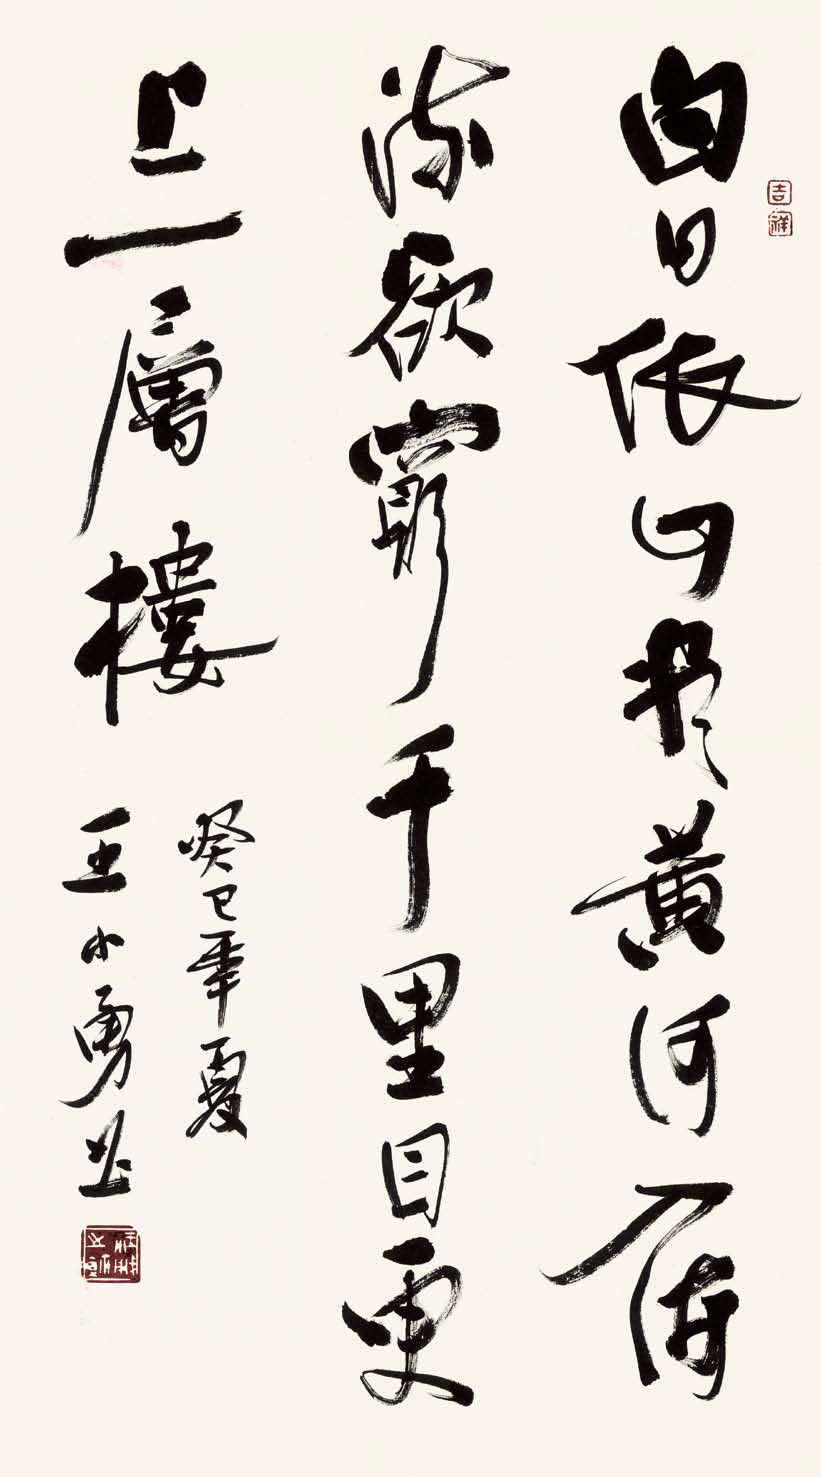 吉祥
白日依山盡黄河入海
流欲窮千里目更
上一層樓
癸巳年夏
王小勇书